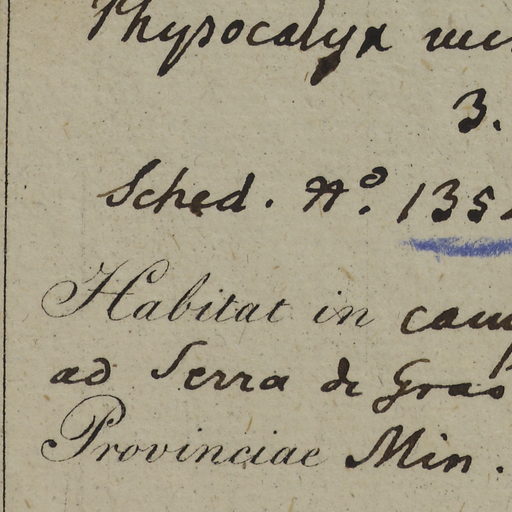 Physocalyx
3.
Sched. No. 135
Habitat in camp
ad Serra de Grao
Provinciae Min.